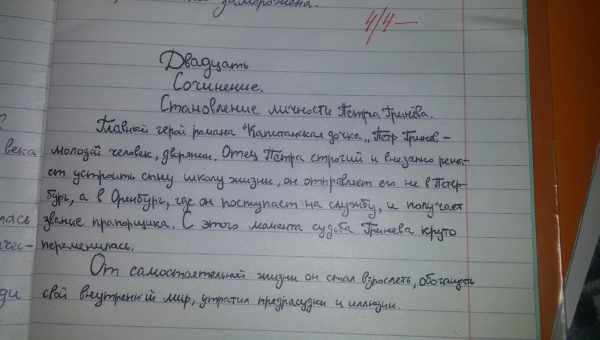 заморожена.
4/4—
Двадцать
Сочинение.
Становление личности Петра Гринёва.
Главной герой романа "Капитанская дочка„ Пётр Гринёв-
века молодой человек, дворянин. Отец Петра строгий и внезапно реша-
ет устроить сыну школу жизни, он отправляет его не в Петер-
бург, а в Оренбург, где он поступает на службу, и получает
лась звание прапорщика. С этого момента судьба Гринёва круто
чес- переменилась.
От самостоятельной жизни он стал взрослеть, обогащать
ди свой внутренный мир, утратил предрассудки и иллюзии.